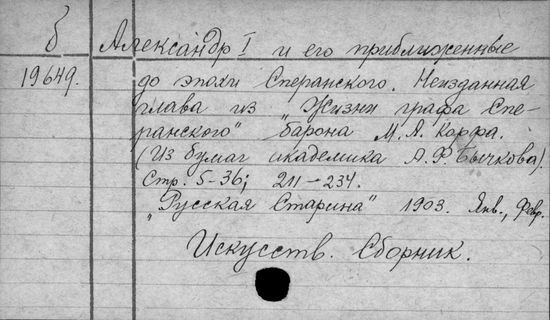 б Александр I и его приближенные
19649. до эпохи Сперанского. Неизданная
глава из „Жизни графа Спе-
ранского" барона М. А. Корфа.
(Из бумаг академика А. Ф. Бычкова).
Стр. 5-36; 211-234.
„Русская Старина" 1903. Янв., Февр.
Искусств. Сборник.